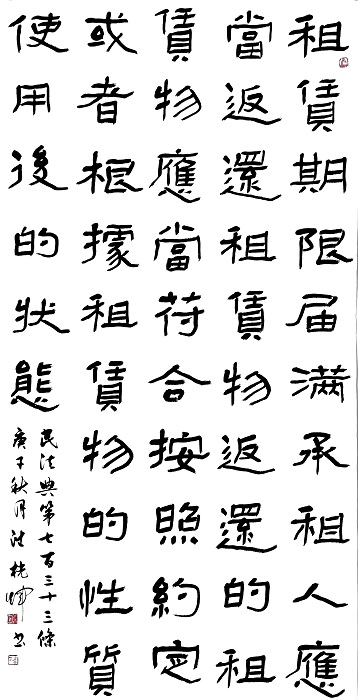 租賃期限届满承租人應
當返還租賃物返還的租
賃物應當符合按照約定
或者根據租賃物的性質
使用後的狀態
民法典第七百三十三條
庚子秋月
书